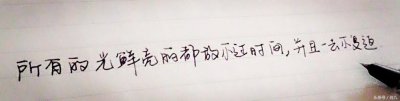 所有的光鲜亮丽都敌不过时间,并且一去不复返